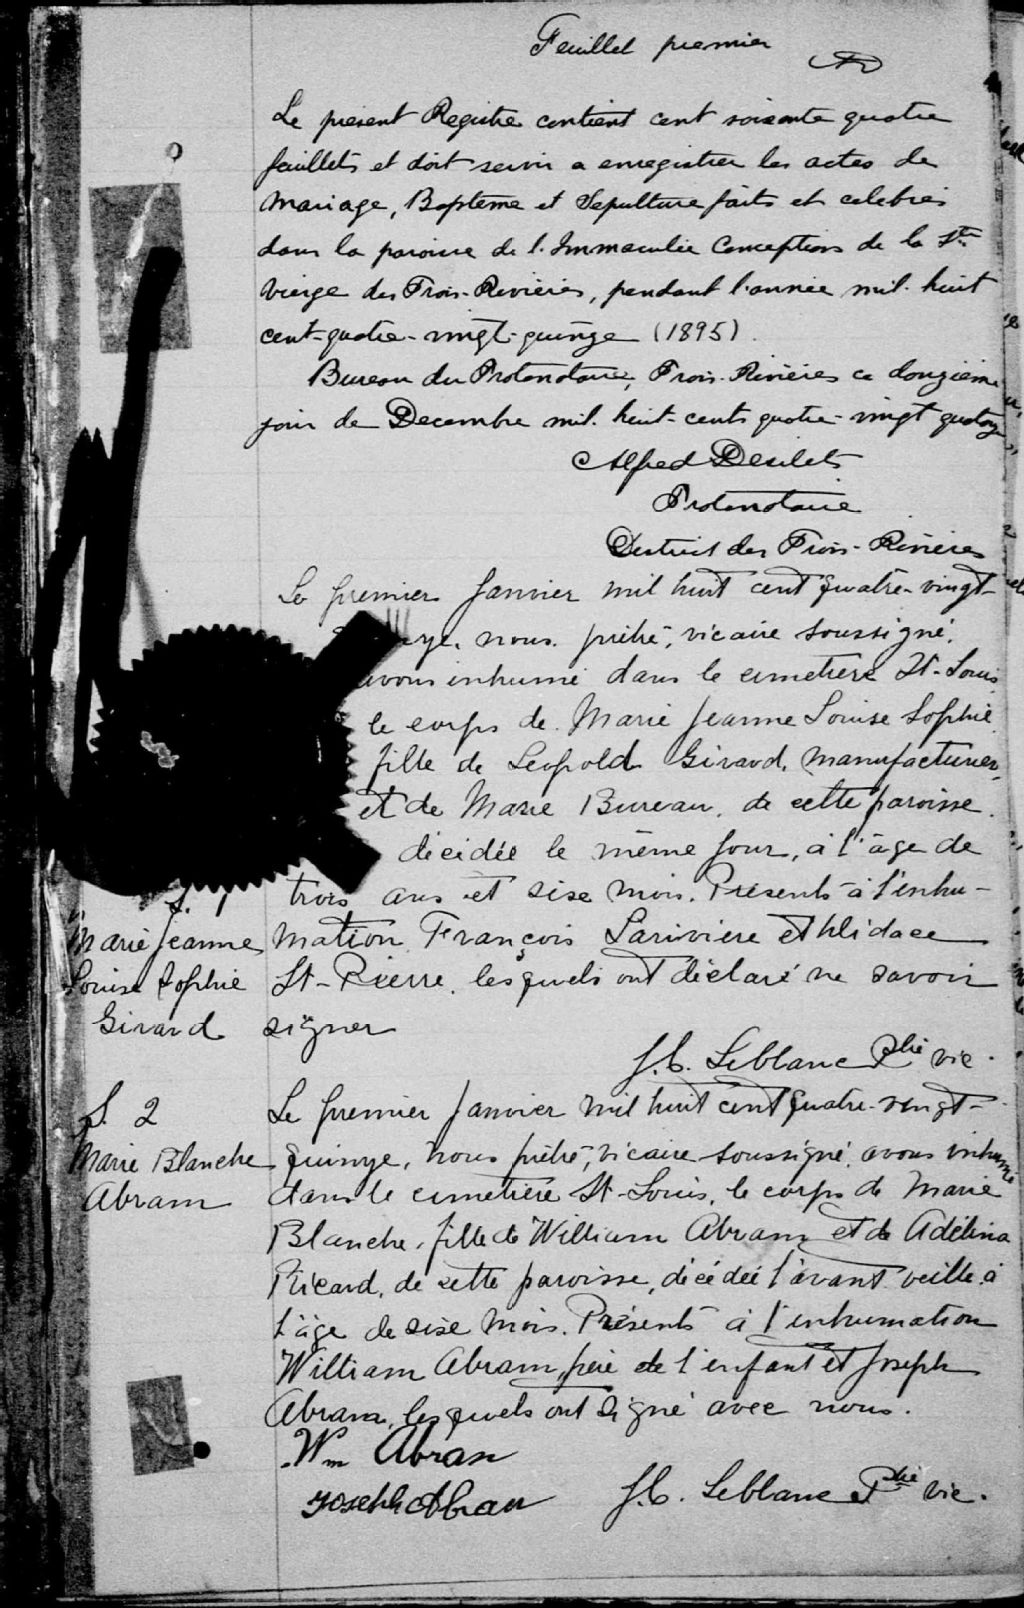 Feuillet premier
Le présent Registre contient cent soixante quatre
feuillets et doit servir a enregistrer les actes de
Mariage, Baptême et Sepulture faits et celebrés
dans la paroisse de l'Immaculée Conception de la Ste
Vierge des Trois-Rivières, pendant l'année mil-huit
cent-quatre-vingt-quinze (1895).
Bureau du Protonotaire, Trois-Rivières ce douzième
jour de Decembre mil-huit-cents quatre-vingt quatorze
Alfred Desilets
Protonotaire
District des Trois-Rivières
Le premier Janvier mil huit cent quatre-vingt-
nous prêtre, vicaire soussigné,
avons inhumé dans le cimetière St-Louis
le corps de Marie Jeanne Louise Sophie
fille de Leopold Girard, manufacturier,
et de Marie Bureau, de cette paroisse.
décidée le même jour, à l'âge de
S. 1
trois ans et sise mois. Présents à l'inhu-
Marie Jeanne
mation François Larivière et Elidace
Louise Sophie
St-Pierre, lesquels ont déclaré ne savoir
Girard
signer
J.C. Leblanc Ptre vic.
S. 2
Le premier Janvier mil huit cent quatre-vingt-
Marie Blanche
quinze, nous prêtre, vicaire soussigné, avons inhumé
Abram
dans le cimetière St-Louis, le corps de Marie
Blanche, fille de William Abram et de Adélina
Ricard, de cette paroisse, décédée l'avant veille, à
l'âge de sise mois. Présents à l'inhumation
William Abram, père de l'enfant et Joseph
Abram, lesquels ont signé avec nous.
Wm Abran
Joseph Abran
J.C. Leblanc Ptre vic.